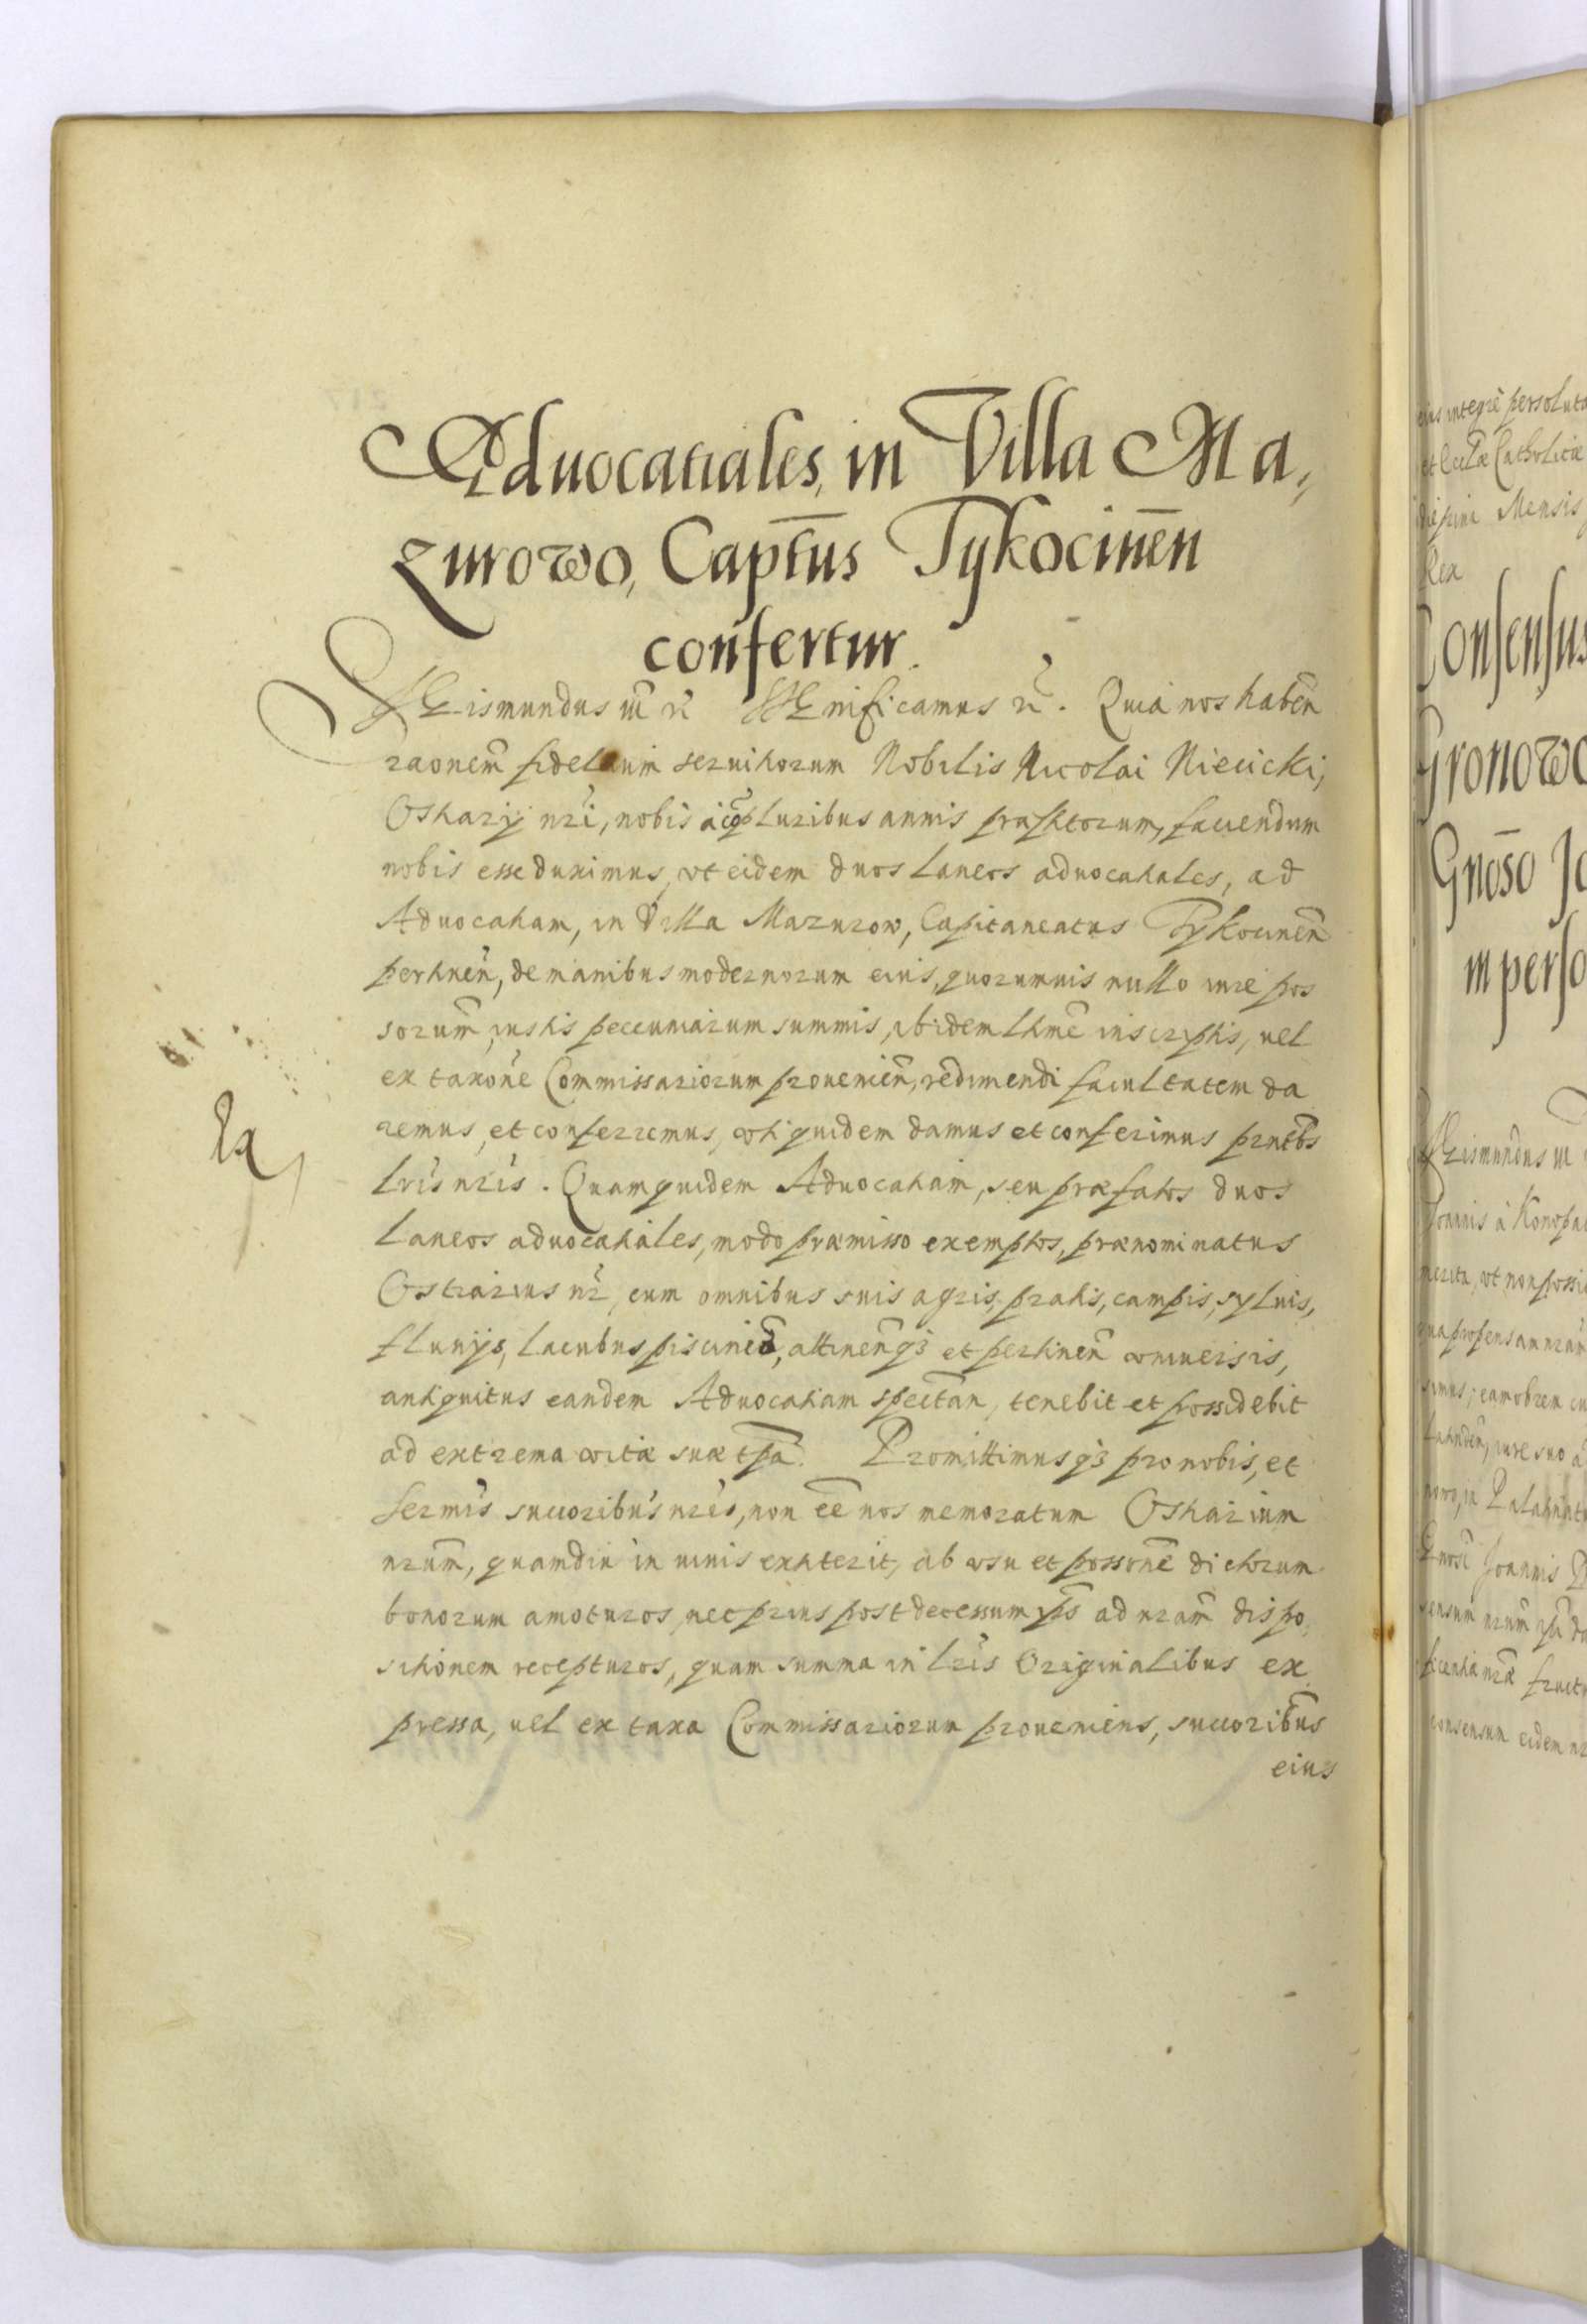 Aduocatiales, in Villa Ma,
zurowo, Captus Tykocinen
confertur.
Sigismundus III rc Significamus rc. Quia nos haben
raonem fidelium seruitiorum Nobilis Nicolai Niecicki,
Ostiarij nri, nobis a compluribus annis præstitorum, faciendum
nobis esse duximus, vt eidem duos laneos aduocatiales, ad
Aduocatiam, in Villa Mazurow, Capitaneatus Tykocinen
pertinen, de manibus modernorum eius, quorumuis nullo iure pos
sorum, iustis peccuniarum summis, ibidem ltime inscriptis, uel
ex taxone Commissariorum prouenien, redimendi facultatem da
remus, et conferremus, vti quidem damus et conferimus pntibs
lris nris. Quam quidem Aduocatiam, seu præfatos duos
laneos aduocatiales, modo præmisso exemptos, prænominatus
Ostiarius nr, cum omnibus suis agris, pratis, campis, syluis,
fluuijs, lacubus, piscinis, attinenqз et pertinen vniuersis,
antiquitus eandem Aduocatiam spectan, tenebit et possidebit
ad extrema vitæ suæ tpa. Promittimusqз pro nobis, et
Sermis succoribus nris, non ee nos memoratum Ostiarium
nrum, quamdiu in uiuis extiterit, ab vsu et possone dictorum
bonorum amoturos, nec prius post decessum ips ad nram dispo,
sitionem recepturos, quam summa in lris Originalibus ex
pressa, uel ex taxa Commissariorum proueniens, succoribus
eius
eius integre persoluta
et Catholicæ
Mensis
Rex
Consensus
Gronowo
Gnoso
in perso
Sigismundus III
Joannis à Konopa
merita, vt non possi
iure suo a
in Palatinatu
Joannis
consensum eidem